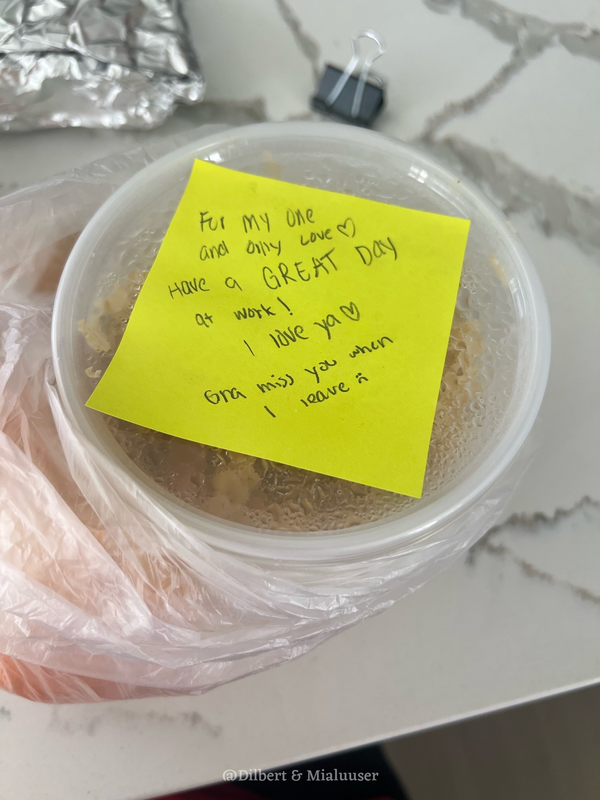 For my one
and only Love♡
Have a GREAT Day
at work!
I love ya♡
Gna miss you when
I leave :(
@Dilbert & Mialuuser